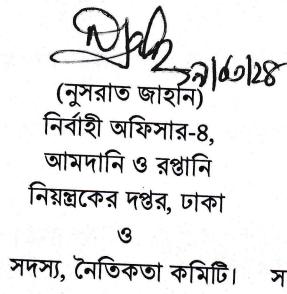 (নুসরাত জাহান)
নির্বাহী অফিসার-৪,
আমদানি ও রপ্তানি
নিয়ন্ত্রকের দপ্তর, ঢাকা
ও
সদস্য, নৈতিকতা কমিটি। স